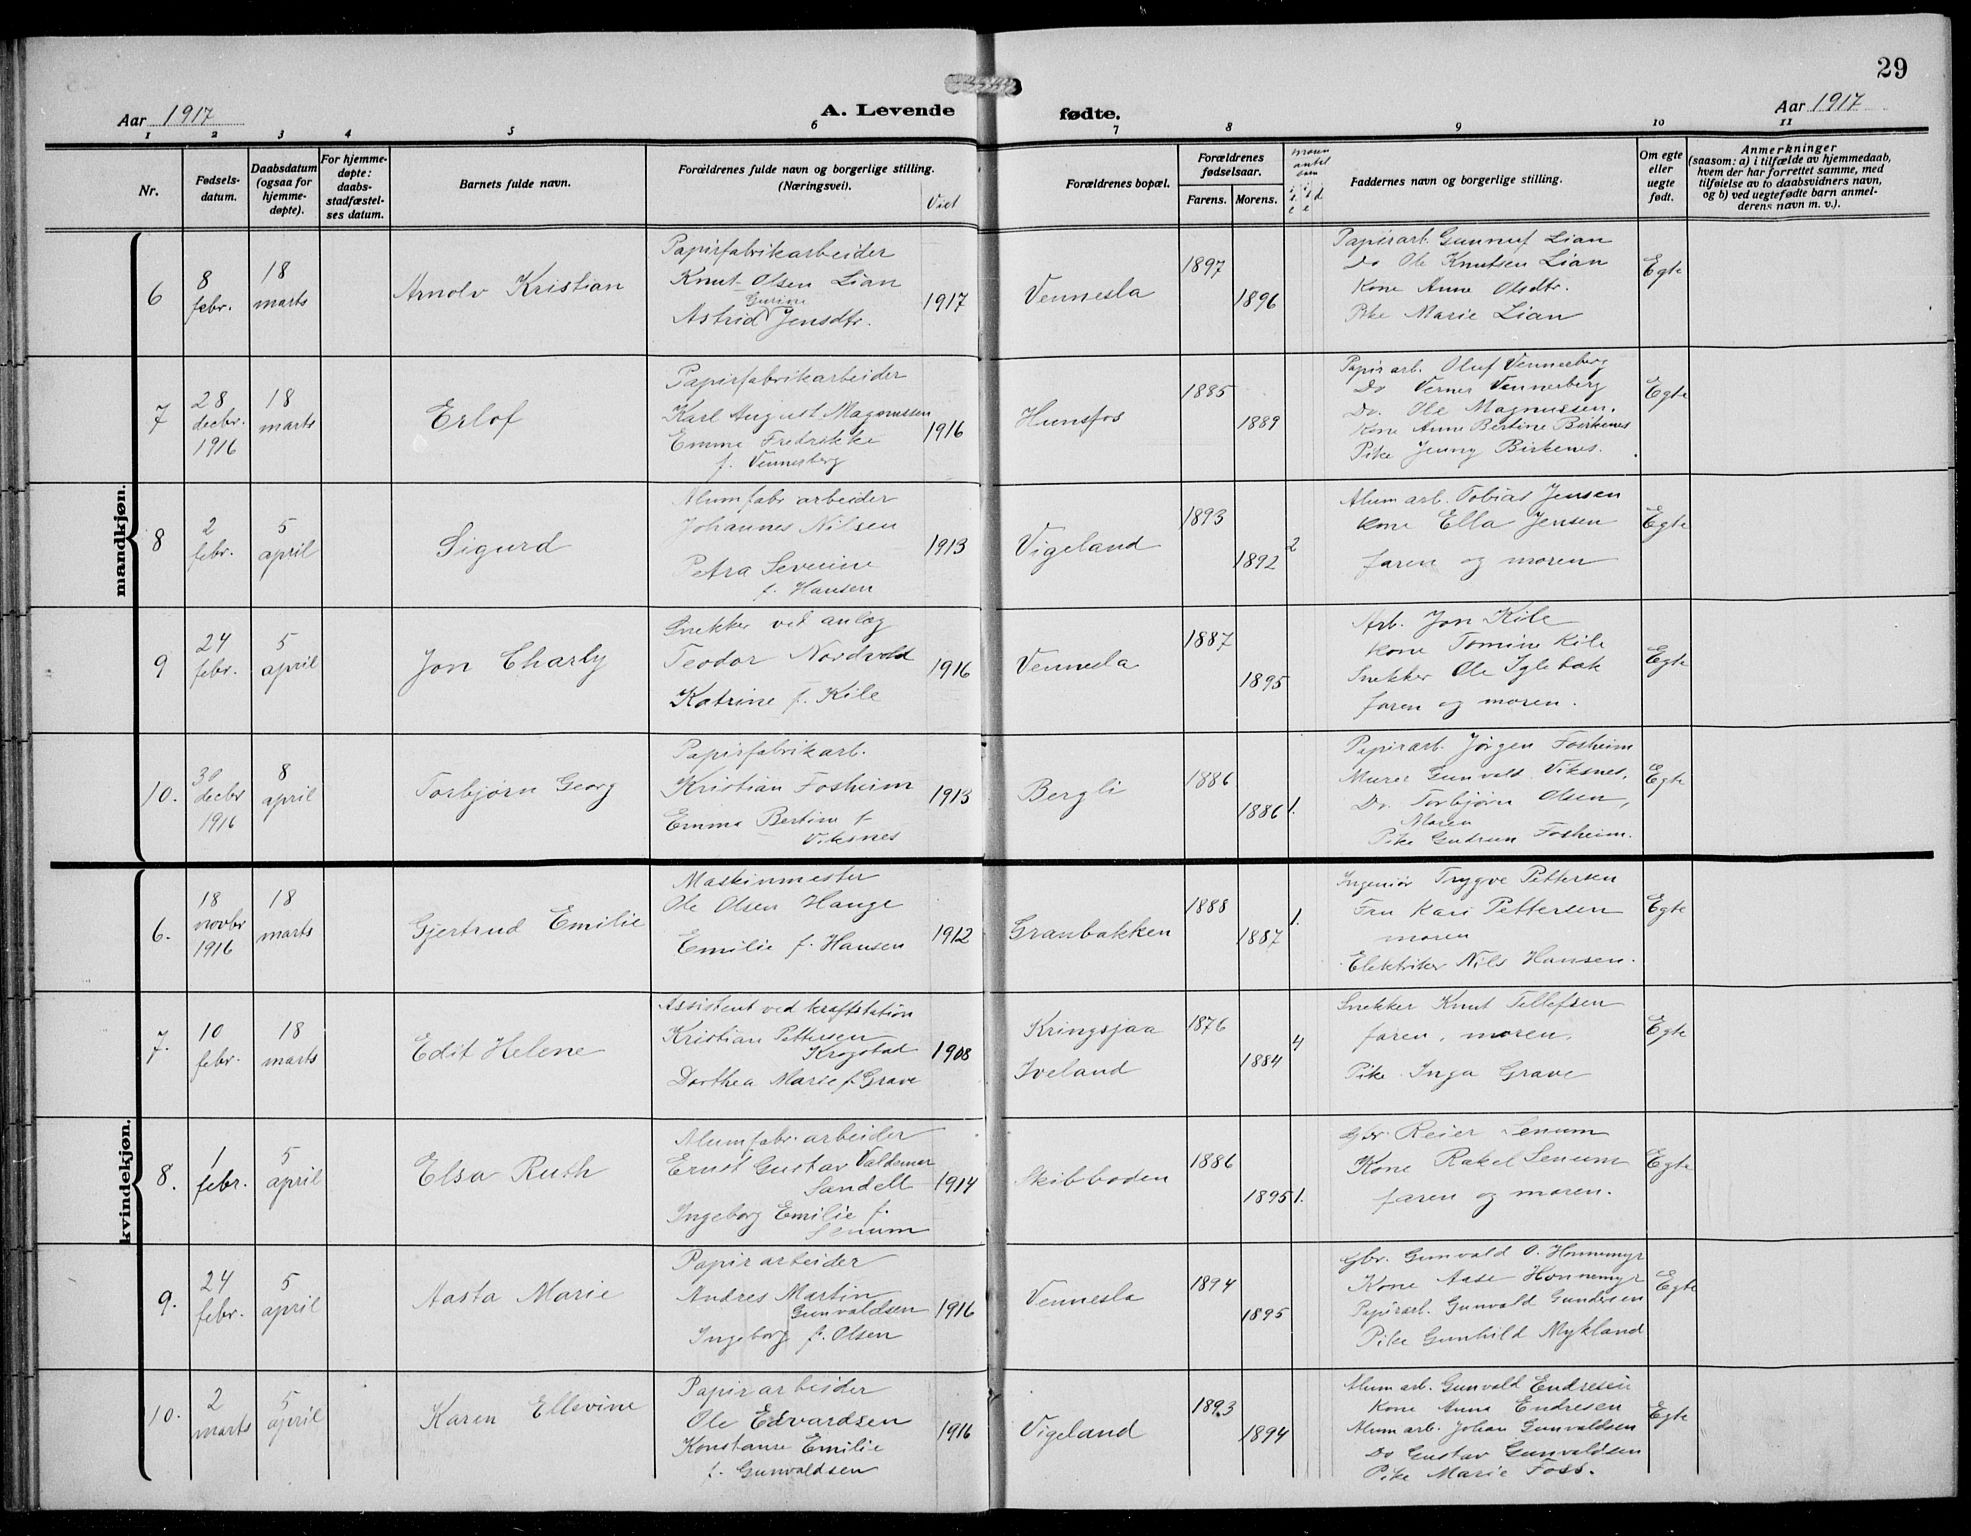 29
Aar 1917
A. Levende
fødte.
Aar 1917
1 2 3 4 5 6 7 8 9 10 11
Nr.
Fødsels-
datum.
Daabsdatum
(ogsaa for
hjemme-
døpte).
For hjemme-
døpte:
daabs-
stadfæstel-
ses datum.
Barnets fulde navn.
Forældrenes fulde navn og borgerlige stilling.
(Næringsvei).
Viet
Forældrenes bopæl.
Forældrenes
fødselsaar.
Farens. Morens.
Faddernes navn og borgerlige stilling.
Om egte
eller
uegte
født.
Anmerkninger
(saasom: a) i tilfælde av hjemmedaab,
hvem der har forrettet samme, med
tilføielse av to daabsvidners navn,
og b) ved uegtefødte barn anmel-
derens navn m. v.).
mandkjøn.
6
8
febr.
18
marts
Arnolv Kristian
Papirfabrikarbeider
Knut Olsen Lian
Gurine
Astrid Jensdtr.
1917
Vennesla
1897
1896
Papirarb. Gunnuf Lian
Do Ole Knutsen Lian
Kone Anne Olsdtr.
Pike Marie Lian
Egte
7
28
decbr.
1916
18
marts
Erlof
Papirfabrikarbeider
Karl August Magnussen
Emma Fredrikke
f. Venneberg
1916
Hunsfos
1885
1889
Papirarb. Oluf Venneberg
Do Verner Vennerberg
Do. Ole Magnussen.
Kone Anne Bertine Birkenes
Pike Jenny Birkenes.
Egte
8
2
febr.
5
april
Sigurd
Alumfabr arbeider
Johannes Nilsen
Petra Severine
f. Hansen
1913
Vigeland
1893
1892
2
Alumarb. Tobias Jensen
Kone Ella Jensen
faren og moren
Egte
9
24
febr.
5
april
Jon Charly
Snekker ved anlæg
Teodor Nordvold
Katrine f. Kile
1916
Vennesla
1887
1895
Arb. Jon Kile
Kone Tomine Kile
Snekker Ole Iglebæk
faren og moren.
Egte
10.
30
decbr
1916
8
april
Torbjørn Georg
Papirfabrikarb.
Kristian Fosheim
Emma Bertine f
Viksnes
1913
Bergli
1886
1886
1.
Papirarb. Jørgen Fosheim
Murer Gunvald Viksnes.
Do. Torbjørn Olsen,
Moren
Pike Gudrun Fosheim.
Egte
kvindekjøn.
6.
18
novbr
1916
18
marts
Gjertrud Emilie
Maskinmester
Ole Olsen Hauge
Emilie f. Hansen
1912
Granbakken
1888
1887
1.
Ingeniør Trygve Pettersen
Fru Kari Pettersen
moren
Elektriker Nils Hansen.
Egte
7.
10
febr.
18
marts
Edit Helene
Assistent ved kraftstation
Kristian Pettersen
Krogstad
Dorthea Marie f. Grave
1908
Kringsjaa
Iveland
1876
1884
4
Snekker Knut Tellefsen
faren, moren,
Pike Inga Grave
Egte
8.
1
febr.
5
april
Elsa Ruth
Alumfabr. arbeider
Ernst Gustav Valdemar
Sandell
Ingeborg Emilie f.
Senum
1914
Skibboden
1886
1895
1.
Gbr Reier Senum
Kone Rakel Senum
faren og moren.
Egte
9.
24
febr.
5
april
Aasta Marie
Papirarbeider
Andres Martin
Gunvaldsen
Ingeborg f. Olsen
1916
Vennesla
1894
1895
Gbr. Gunvald O. Honnemyr
Kone Aase Honnemyr
Papirarb. Gunvald Gundersen
Pike Gunhild Mykland
Egte
10.
2
marts
5
april
Karen Ellevine
Papirarbeider
Ole Edvardsen
Konstanse Emilie
f. Gunvaldsen
1916
Vigeland
1893
1894
Alumarb. Gunvald Endresen
Kone Anna Endresen
Alumarb. Johan Gunvaldsen
Do Gustav Gunvaldsen
Pike Marie Foss.
Egte